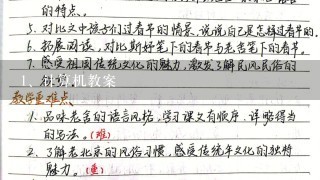 的特点。
5.对比文中孩子们过春节的情景,说说自己是怎样过春节的。
6.拓展阅读,对比斯好笔下的春节与老舍笔下的春节。
7.感受祖国传统文化的魅力,激发了解民风民俗的
1、计算机教案
教学重难点、
1.品味老舍的语言风格,学习课文有顺序、详略得当
的写法。(难)
2.了解老北京的风俗习惯,感受传统年文化的独特
魅力。(重)